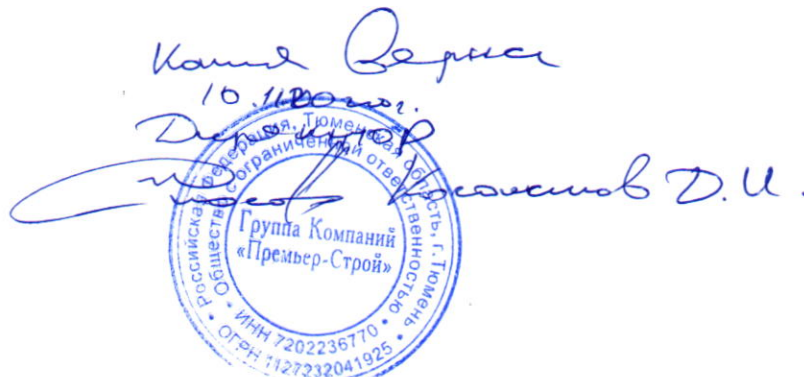 Копия Верна
Директор
Д.И.
Российская Федерация, Тюменская область, г. Тюмень
Общество с ограниченной ответственностью
Группа Компаний
«Премьер-Строй»
ИНН 7202236770
ОГРН 1127232041925